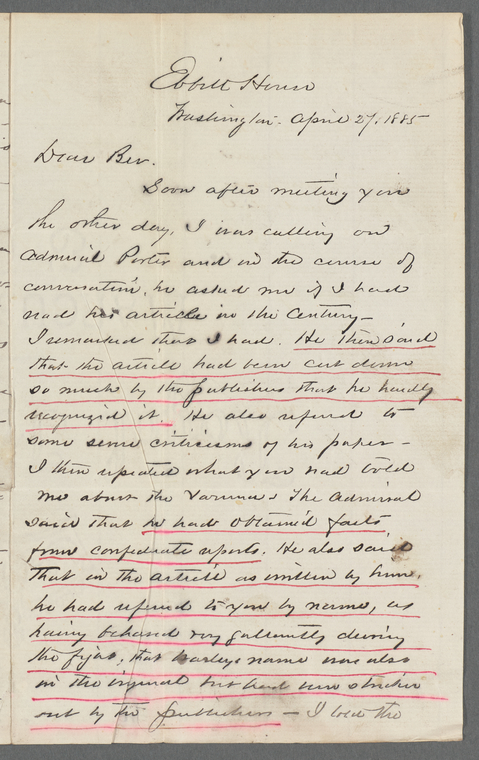 Ebbitt House
Washington. April 27, 1885
Dear Bev.
Soon after meeting you
the other day, I was calling on
Admiral Porter and in the course of
conversation, he asked me if I had
read his article in the Century –
I remarked that I had. He then said
that the article had been cut down
so much by the publishers that he hardly
recognized it. He also referred to
some severe criticisms of his paper –
I then repeated what you had told
me about the Varuna & The Admiral
said that he had obtained facts
from confederate reports. He also said
that in the article as written by him,
he had referred to you by name, as
having behaved very gallantly during
the fight, that name was also
in the original but had been stricken
out by the publishers – I told the